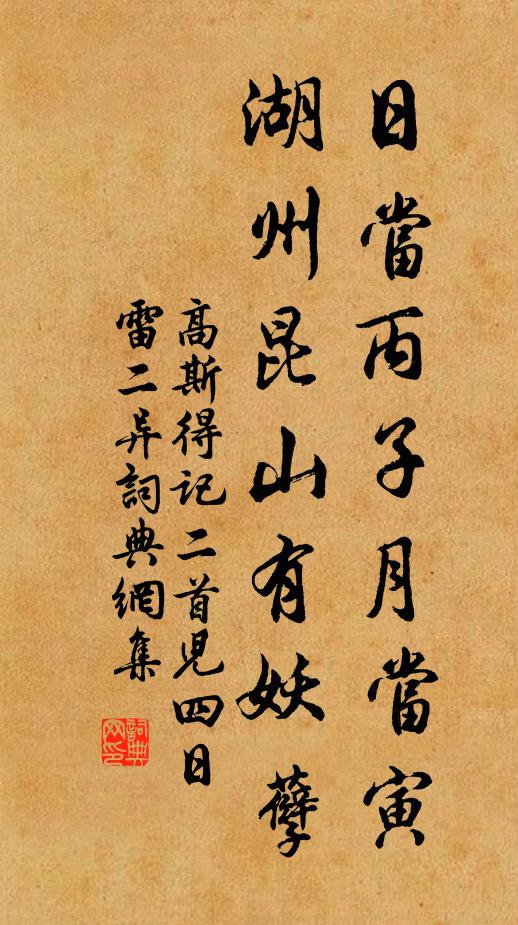 日當丙子月當寅
湖州昆山有妖孽
高斯得記二首見四日
雷二异詞典網集
詞典網印